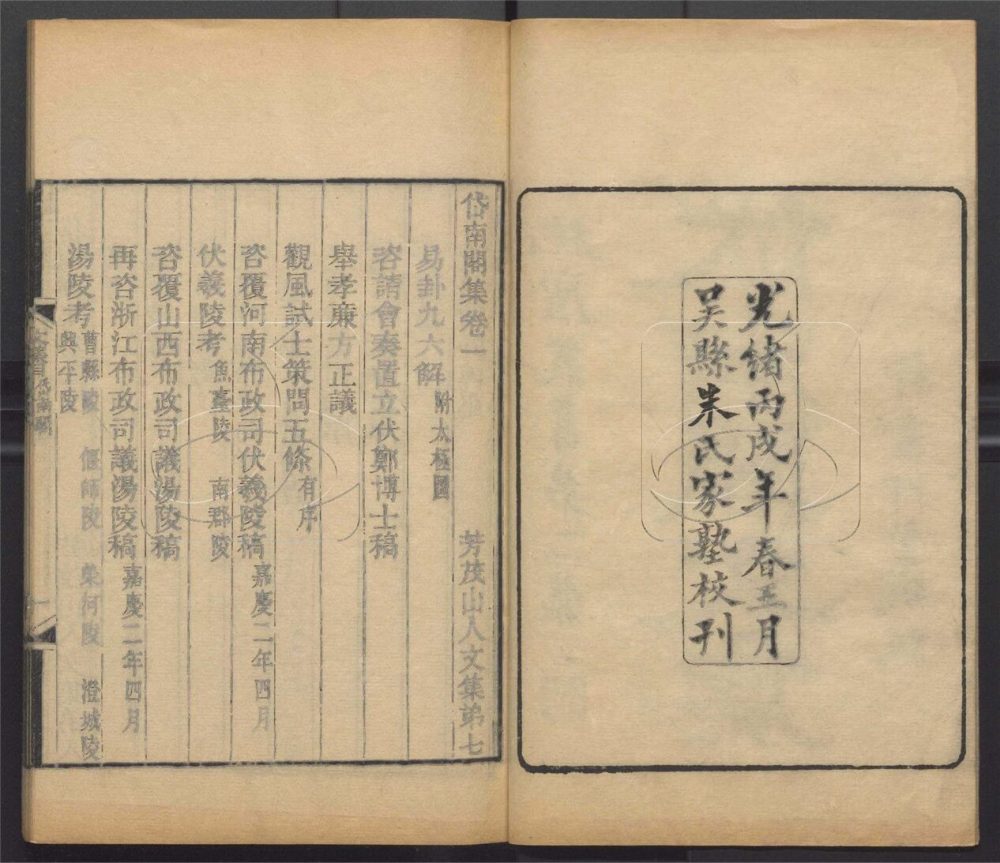 光緒丙戌年春三月
吳縣朱氏家塾校刊
岱南閣集卷一　芳茂山人文集弟七
易卦九六解 附太極圖
咨請會奏置立伏鄭博士稿
舉孝廉方正議
觀風試士策問五條 有序
咨覆河南布政司伏羲陵稿 嘉慶二年四月
伏羲陵考 魚臺陵　南郡陵
咨覆山西布政司議湯陵稿
再咨浙江布政司議湯陵稿 嘉慶二年四月
湯陵考 曹縣陵　偃師陵　榮河陵　澄城陵
興平陵